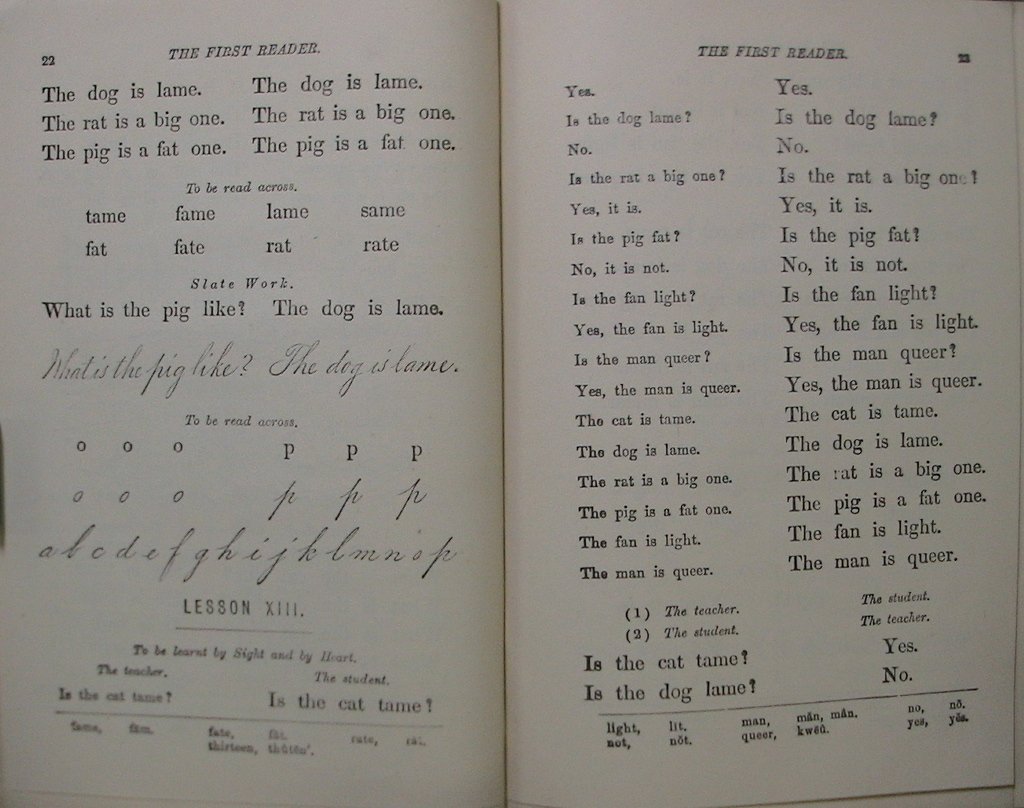 22 THE FIRST READER.
The dog is lame. The dog is lame.
The rat is a big one. The rat is a big one.
The pig is a fat one. The pig is a fat one.
To be read across.
tame fame lame same
fat fate rat rate
Slate Work.
What is the pig like? The dog is lame.
What is the pig like? The dog is lame.
To be read across.
o o o p p p
o o o p p p
a b c d e f g h i j k l m n o p
LESSON XIII.
To be learnt by Sight and by Heart.
The teacher. The student.
Is the cat tame? Is the cat tame?
fame, fām. fate, fāt. rate, rāt.
thirteen,
THE FIRST READER. 23
Yes. Yes.
Is the dog lame? Is the dog lame?
No. No.
Is the rat a big one? Is the rat a big one?
Yes, it is. Yes, it is.
Is the pig fat? Is the pig fat?
No, it is not. No, it is not.
Is the fan light? Is the fan light?
Yes, the fan is light. Yes, the fan is light.
Is the man queer? Is the man queer?
Yes, the man is queer. Yes, the man is queer.
The cat is tame. The cat is tame.
The dog is lame. The dog is lame.
The rat is a big one. The rat is a big one.
The pig is a fat one. The pig is a fat one.
The fan is light. The fan is light.
The man is queer. The man is queer.
(1) The teacher. The student.
(2) The student. The teacher.
Is the cat tame? Yes.
Is the dog lame? No.
light, līt. man, măn, mân. no, nō.
not, nŏt. queer, yes, yĕs.